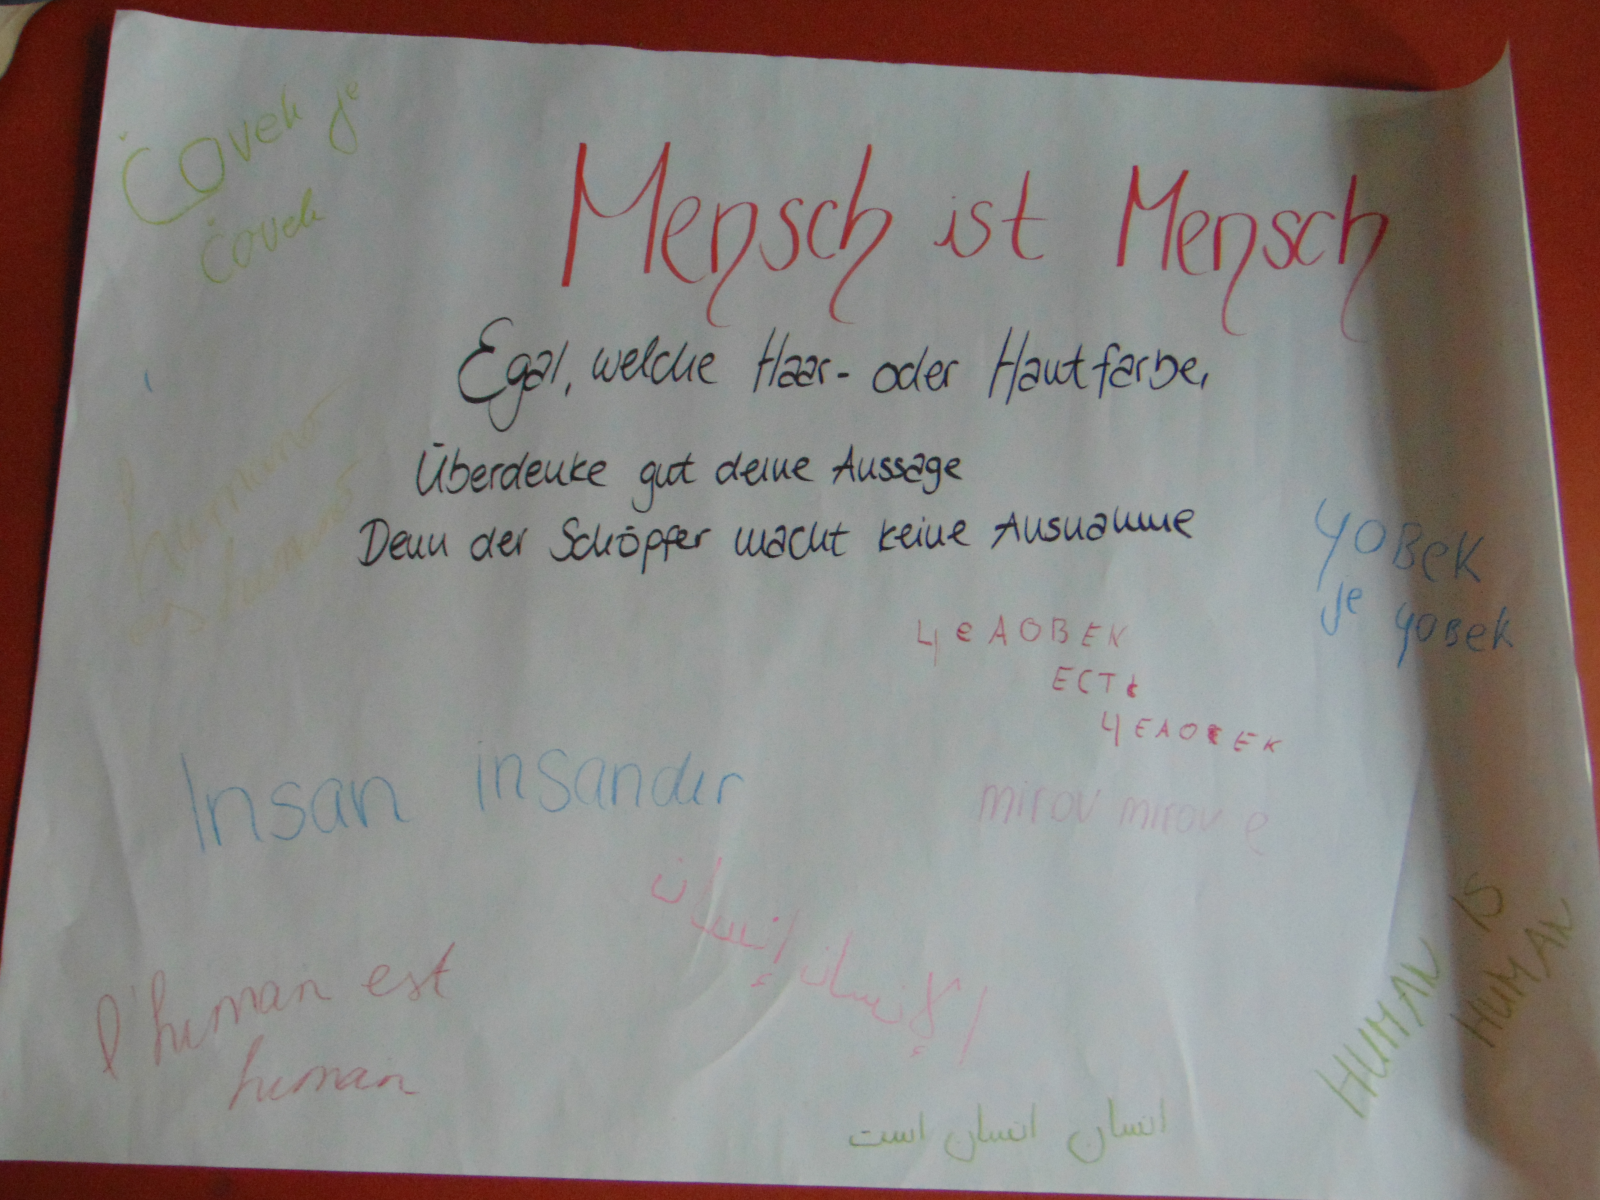 Čovek je
čovek
Mensch ist Mensch
Egal, welche Haar- oder Hautfarbe,
Überdenke gut deine Aussage
Denn der Schöpfer macht keine Ausnahme
humano
es humano
човек
je човек
ЧеЛОВЕК
ЕСТЬ
ЧЕЛОВЕК
Insan insandır
mirov mirov e
الإنسان إنسان
l'human est
human
HUMAN IS
HUMAN
انسان انسان است